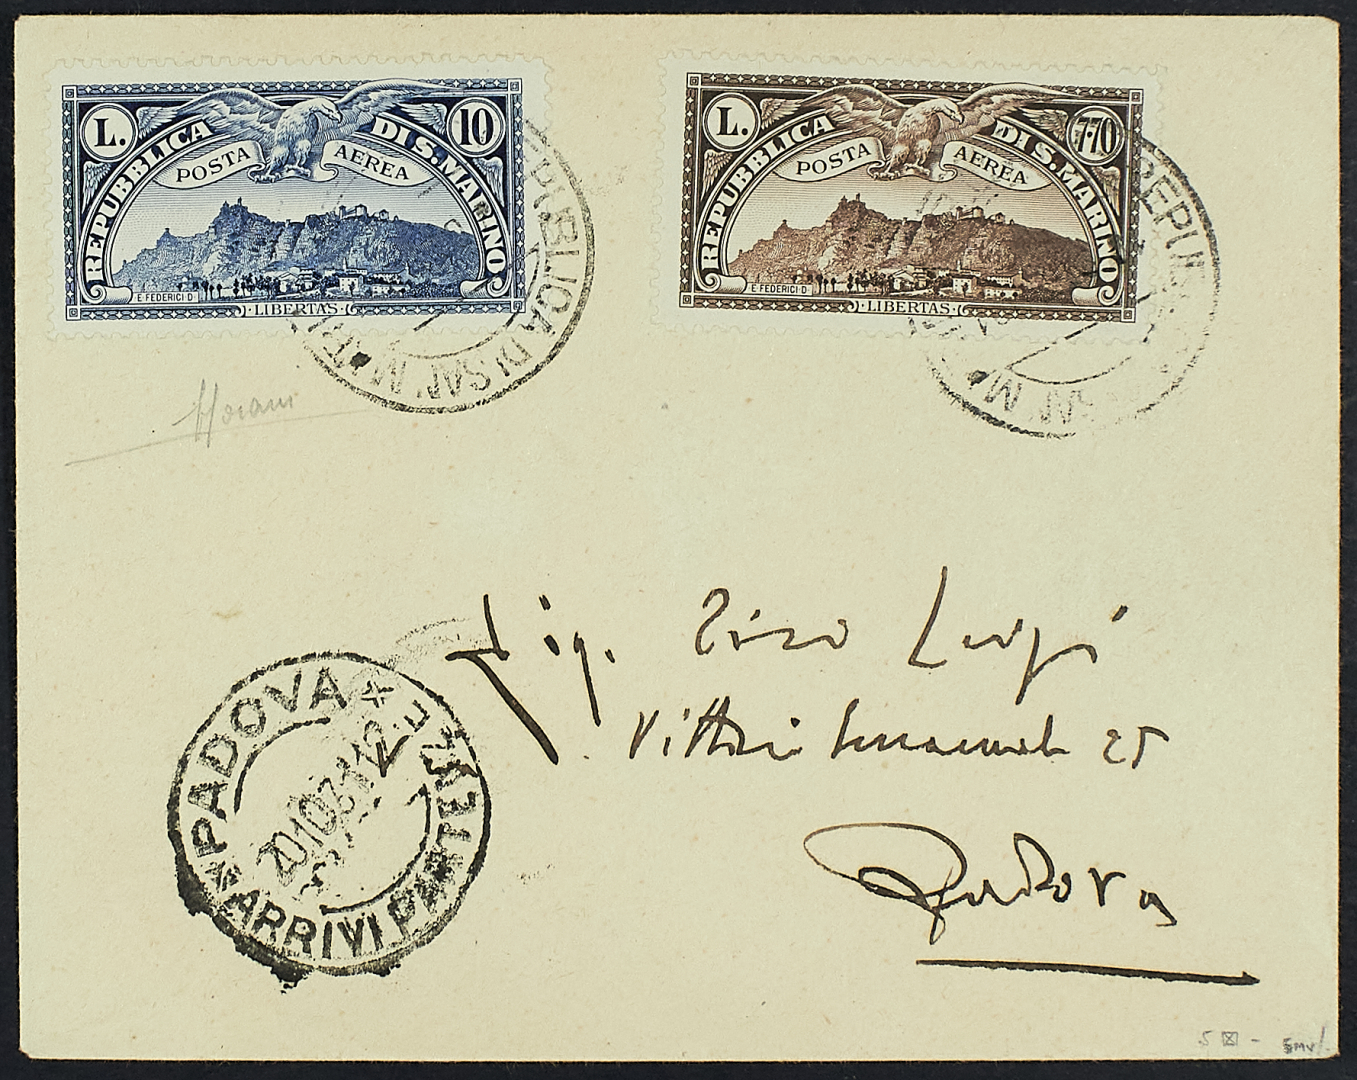 L. 10
REPUBBLICA DI S. MARINO
POSTA AEREA
E. FEDERICI D.
· LIBERTAS ·
L. 7·70
REPUBBLICA DI S. MARINO
POSTA AEREA
E. FEDERICI D.
· LIBERTAS ·
PUBLICA DI SAN MAR
REPU SAN M
Sig. Luigi
Vittorio Emanuele 25
Padova
PADOVA
20.10.31.12
ARRIVI PARTENZE